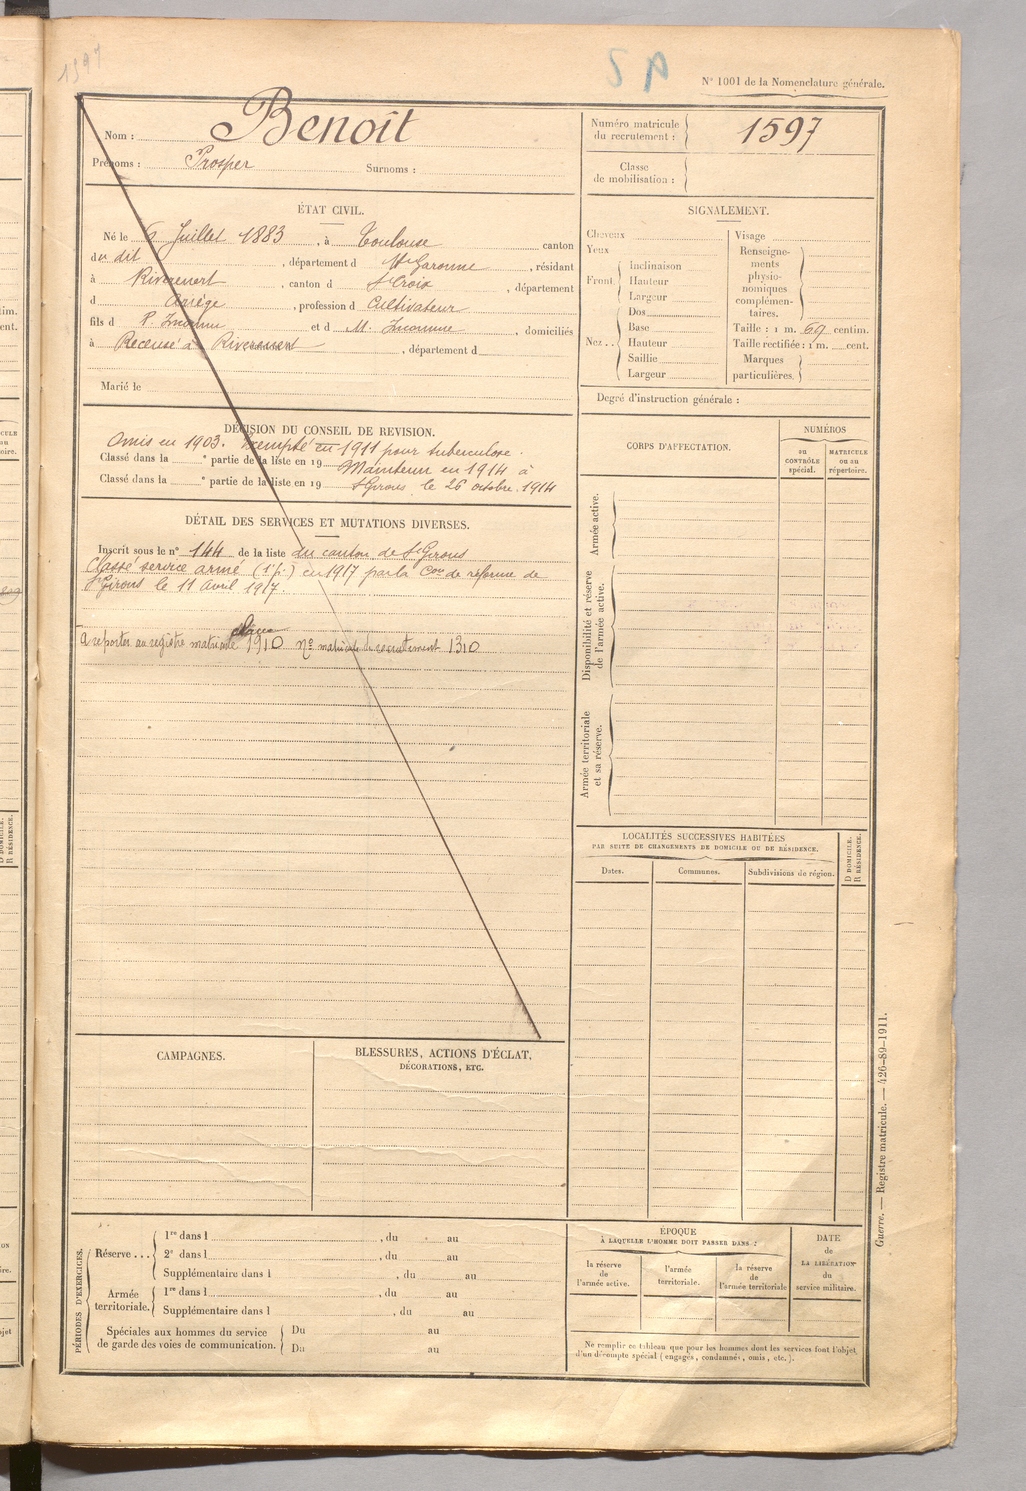 1597
SA
N° 1001 de la Nomenclature générale.
Nom : Benoît
Prénoms : Prosper Surnoms :
Numéro matricule du recrutement : 1597
Classe de mobilisation :
ÉTAT CIVIL.
Né le 6 Juillet 1883, à Toulouse canton
du dit, département d Hte Garonne, résidant
à Rivèrenert, canton d St Croix, département
d Ariège, profession d Cultivateur
fils d P. Inconnu et d M. Inconnue, domiciliés
à Recensé à Rivèrenert, département d
Marié le
SIGNALEMENT.
Cheveux
Yeux
Front. Inclinaison
Hauteur
Largeur
Nez .. Dos
Base
Hauteur
Saillie
Largeur
Visage
Renseignements physionomiques complémentaires.
Taille : 1 m. 69 centim.
Taille rectifiée : 1 m. cent.
Marques particulières.
Degré d'instruction générale :
DÉCISION DU CONSEIL DE REVISION.
Omis en 1903. Exempté en 1911 pour tuberculose.
Classé dans la ° partie de la liste en 19 Maintenu en 1914 à
Classé dans la ° partie de la liste en 19 St Girons le 26 octobre 1914
DÉTAIL DES SERVICES ET MUTATIONS DIVERSES.
Inscrit sous le n° 144 de la liste du canton de St Girons
Classé service armé (1e p.) en 1917 par la Con de réforme de
St Girons le 11 Avril 1917.
classe
A reporter au registre matricule 1910 No matricule de recrutement 1310
CORPS D'AFFECTATION.
NUMÉROS
au CONTRÔLE spécial.
MATRICULE ou au répertoire.
Armée active.
Disponibilité et réserve de l'armée active.
Armée territoriale et sa réserve.
LOCALITÉS SUCCESSIVES HABITÉES
PAR SUITE DE CHANGEMENTS DE DOMICILE OU DE RÉSIDENCE.
Dates.
Communes.
Subdivisions de région.
D DOMICILE.
R RÉSIDENCE.
CAMPAGNES.
BLESSURES, ACTIONS D'ÉCLAT,
DÉCORATIONS, ETC.
PÉRIODES D'EXERCICES.
Réserve ... 1re dans l , du au
2e dans l , du au
Supplémentaire dans l , du au
Armée territoriale. 1re dans l , du au
Supplémentaire dans l , du au
Spéciales aux hommes du service de garde des voies de communication. Du au
Du au
ÉPOQUE
À LAQUELLE L'HOMME DOIT PASSER DANS :
la réserve de l'armée active.
l'armée territoriale.
la réserve de l'armée territoriale
DATE de LA LIBÉRATION du service militaire.
Ne remplir ce tableau que pour les hommes dont les services font l'objet
d'un décompte spécial (engagés, condamnés, omis, etc.).
Guerre. — Registre matricule. — 426-89-1911.